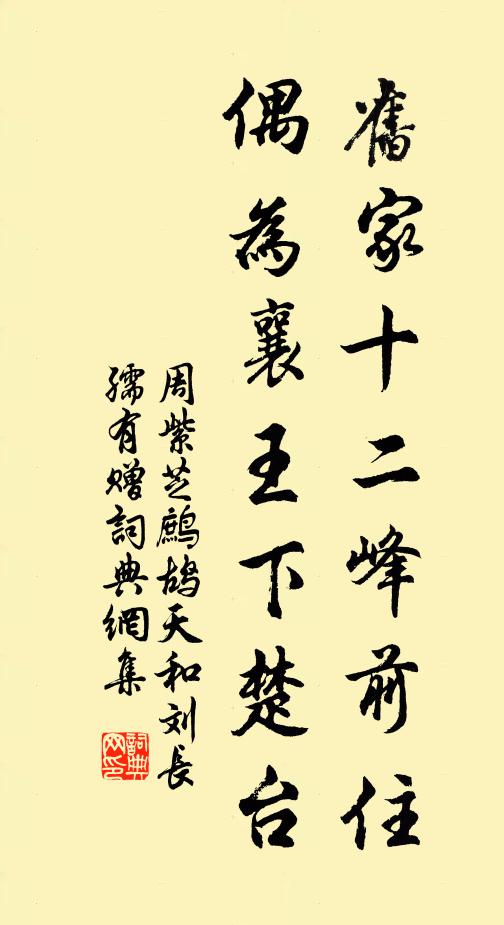 舊家十二峰前住
偶為襄王下楚台
周紫芝鷓鴣天和刘長
孺有贈詞典網集
詞典
网印